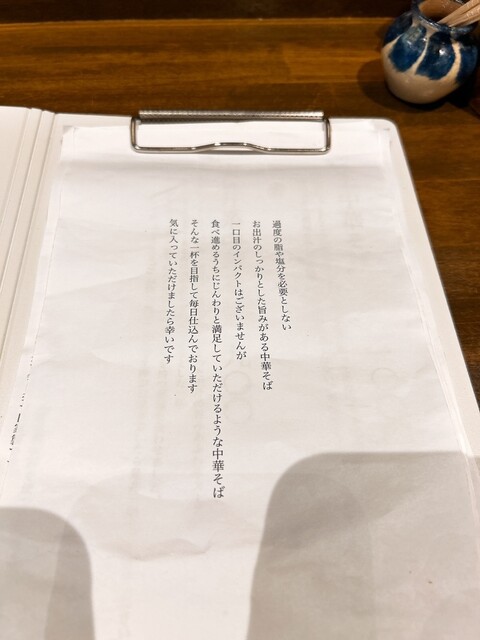 過度の脂や塩分を必要としない
お出汁のしっかりとした旨みがある中華そば
一口目のインパクトはございませんが
食べ進めるうちにじんわりと満足していただけるような中華そば
そんな一杯を目指して毎日仕込んでおります
気に入っていただけましたら幸いです